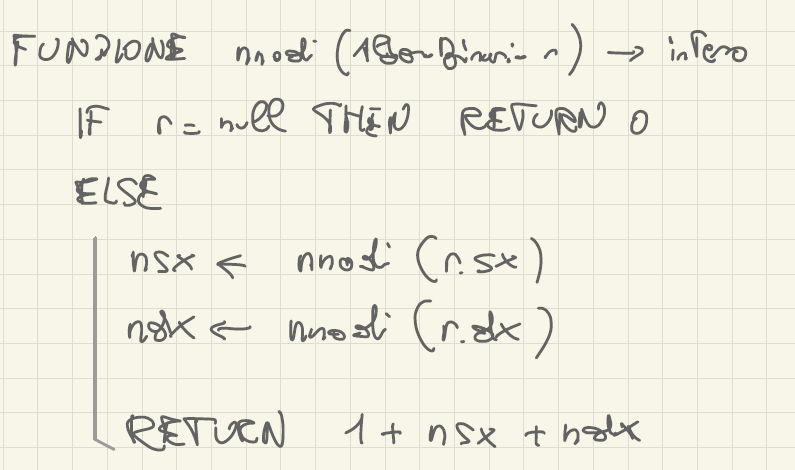 FUNZIONE nnodi (AlberoBinario r) → intero
IF r = null THEN RETURN 0
ELSE
nsx ← nnodi (r.sx)
ndx ← nnodi (r.dx)
RETURN 1 + nsx + ndx